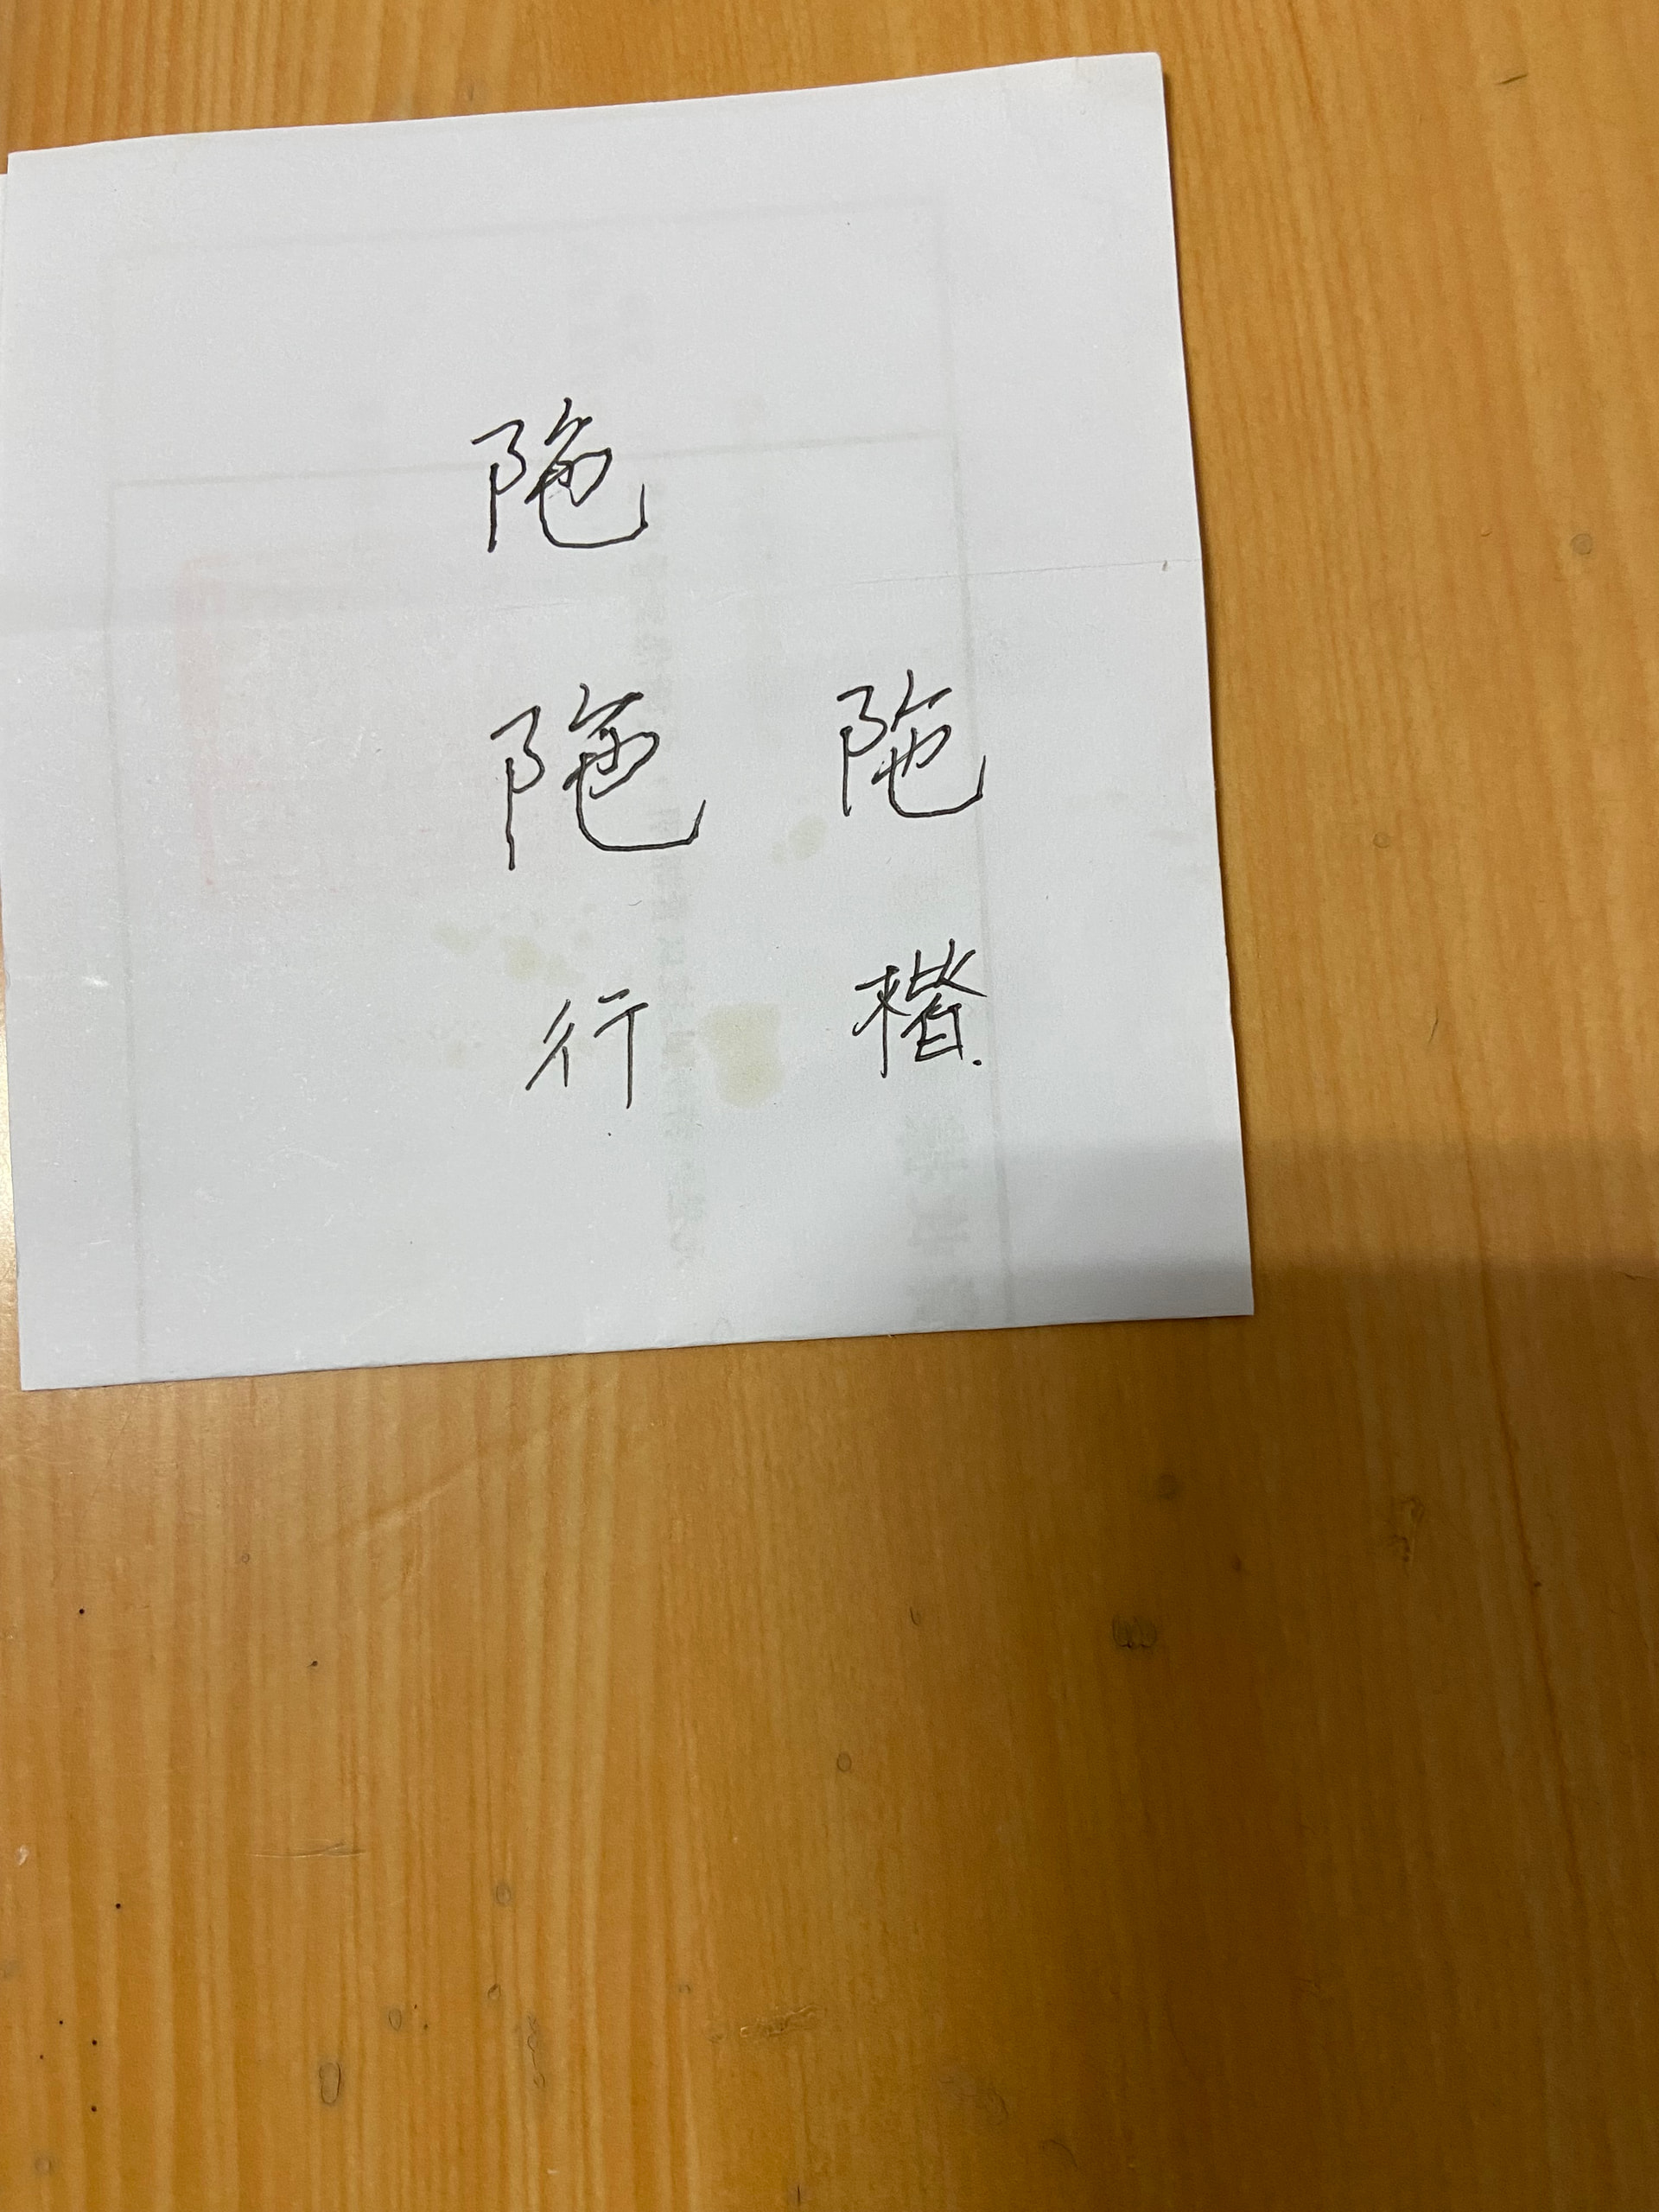 陁
陁 陁
行 楷.